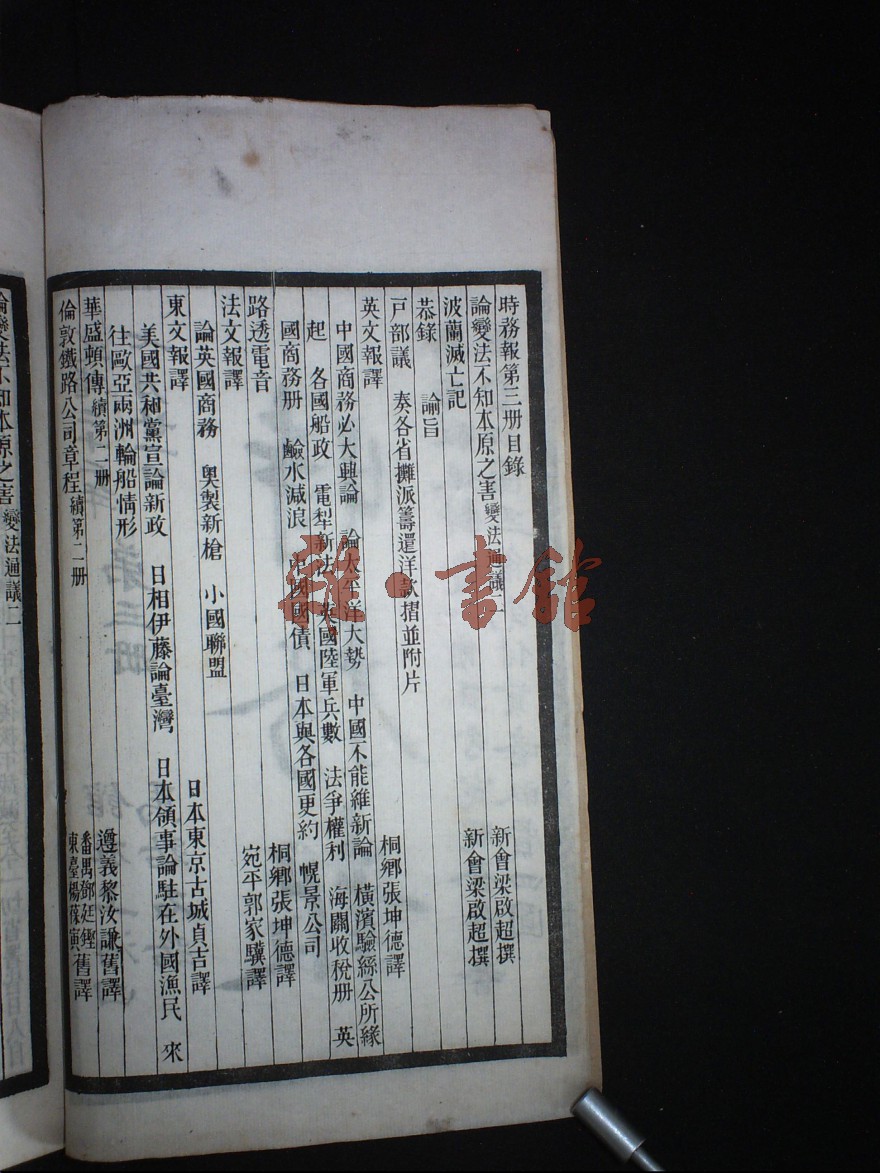 時務報第三册目錄
論變法不知本原之害 變法通議二 新會梁啟超撰
波蘭滅亡記 新會梁啟超撰
恭錄 諭旨
戸部議 奏各省攤派籌還洋款摺並附片
英文報譯 桐鄉張坤德譯
中國商務必大興論 論太平洋大勢 中國不能維新論 橫濱驗絲公所緣
起 各國船政 電犁新法 英國陸軍兵數 法爭權利 海關收稅册 英
國商務册 鹼水減浪 中國國債 日本與各國更約 幌景公司
路透電音 桐鄉張坤德譯
法文報譯 宛平郭家驥譯
論英國商務 奧製新槍 小國聯盟
東文報譯 日本東京古城貞吉譯
美國共和黨宣論新政 日相伊藤論臺灣 日本領事論駐在外國漁民 來
往歐亞兩洲輪船情形
華盛頓傳 續第二册 遵義黎汝謙舊譯
倫敦鐵路公司章程 續第二册 番禺鄧廷鏗 東臺楊葆寅舊譯
論變法不知本原之害 變法通議二
雜·書館